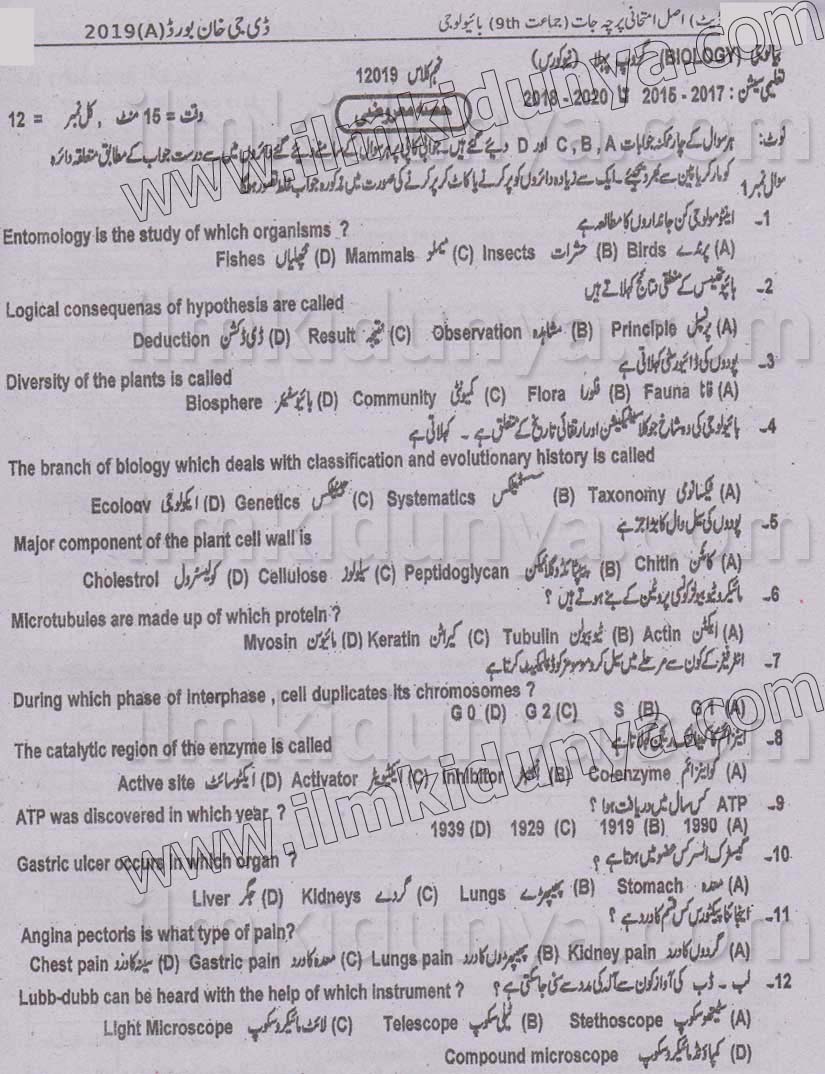 (نیٹ) اصل امتحانی پرچہ جات (جماعت 9th) بائیولوجی ڈی جی خان بورڈ(A)2019
بیالوجی (BIOLOGY) گروپ پہلا (نیوکورس) نہم کلاس 12019
تعلیمی سیشن : 2017 - 2015 تا 2020 - 2018 حصہ معروضی وقت = 15 منٹ ، کل نمبر = 12
نوٹ: ہر سوال کے چار ممکنہ جوابات C , B , A اور D دیئے گئے ہیں۔ جوابی کاپی پر ہر سوال کے سامنے دیئے گئے دائروں میں سے درست جواب کے مطابق متعلقہ دائرہ
کو مارکر یا پین سے بھر دیجئے۔ ایک سے زیادہ دائروں کو پر کرنے یا کاٹ کر پر کرنے کی صورت میں مذکورہ جواب غلط تصور ہوگا
سوال نمبر 1
1۔ اینٹومولوجی کن جانداروں کا مطالعہ ہے
Entomology is the study of which organisms ?
(A) پرندے Birds (B) حشرات Insects (C) میملز Mammals (D) مچھلیاں Fishes
2۔ ہائپوتھیسس کے منطقی نتائج کہلاتے ہیں
Logical consequenas of hypothesis are called
(A) پرنسپل Principle (B) مشاہدہ Observation (C) نتیجہ Result (D) ڈی ڈکشن Deduction
3۔ پودوں کی ڈائیورسٹی کہلاتی ہے
Diversity of the plants is called
(A) فانا Fauna (B) فلورا Flora (C) کمیونٹی Community (D) بائیوسفیئر Biosphere
4۔ بائیولوجی کی وہ شاخ جو کلاسیفیکیشن اور ارتقائی تاریخ کے متعلق ہے ۔ کہلاتی ہے
The branch of biology which deals with classification and evolutionary history is called
(A) ٹیکسانومی Taxonomy (B) سسٹمیٹکس Systematics (C) جینیٹکس Genetics (D) ایکولوجی Ecology
5۔ پودوں کی سیل وال کا بڑا جز ہے
Major component of the plant cell wall is
(A) کائٹن Chitin (B) پیپٹائڈوگلائیکن Peptidoglycan (C) سیلولوز Cellulose (D) کولیسٹرول Cholestrol
6۔ مائیکروٹیوبیولز کونسی پروٹین کے بنے ہوتے ہیں ؟
Microtubules are made up of which protein ?
(A) ایکٹن Actin (B) ٹیوبیولن Tubulin (C) کیراٹن Keratin (D) مائیوسن Myosin
7۔ انٹرفیز کے کون سے مرحلے میں سیل کروموسومز کو ڈپلیکیٹ کرتا ہے
During which phase of interphase , cell duplicates its chromosomes ?
(A) G 1 (B) S (C) G 2 (D) G 0
8۔ اینزائم کا کیٹالٹک ریجن کہلاتا ہے
The catalytic region of the enzyme is called
(A) کواینزائم Coenzyme (B) Inhibitor (C) ایکٹیویٹر Activator (D) ایکٹو سائٹ Active site
9۔ ATP کس سال میں دریافت ہوا ؟
ATP was discovered in which year ?
(A) 1990 (B) 1919 (C) 1929 (D) 1939
10۔ گیسٹرک السر کس عضو میں ہوتا ہے ؟
Gastric ulcer occurs in which organ ?
(A) معدہ Stomach (B) پھیپھڑے Lungs (C) گردے Kidneys (D) جگر Liver
11۔ اینجائنا پیکٹورس کس قسم کا درد ہے ؟
Angina pectoris is what type of pain?
(A) گردوں کا درد Kidney pain (B) پھیپھڑوں کا درد Lungs pain (C) معدہ کا درد Gastric pain (D) سینہ کا درد Chest pain
12۔ لب ۔ ڈب کی آواز کون سے آلہ کی مدد سے سنی جاسکتی ہے ؟
Lubb-dubb can be heard with the help of which instrument ?
(A) سٹیتھوسکوپ Stethoscope (B) ٹیلی سکوپ Telescope (C) لائٹ مائیکروسکوپ Light Microscope
(D) کمپاؤنڈ مائیکروسکوپ Compound microscope
www.ilmkidunya.com
ilmkidunya.com
ilmkidunya.com
www.ilmkidunya.com
ilmkidunya.com
ilmkidunya.com